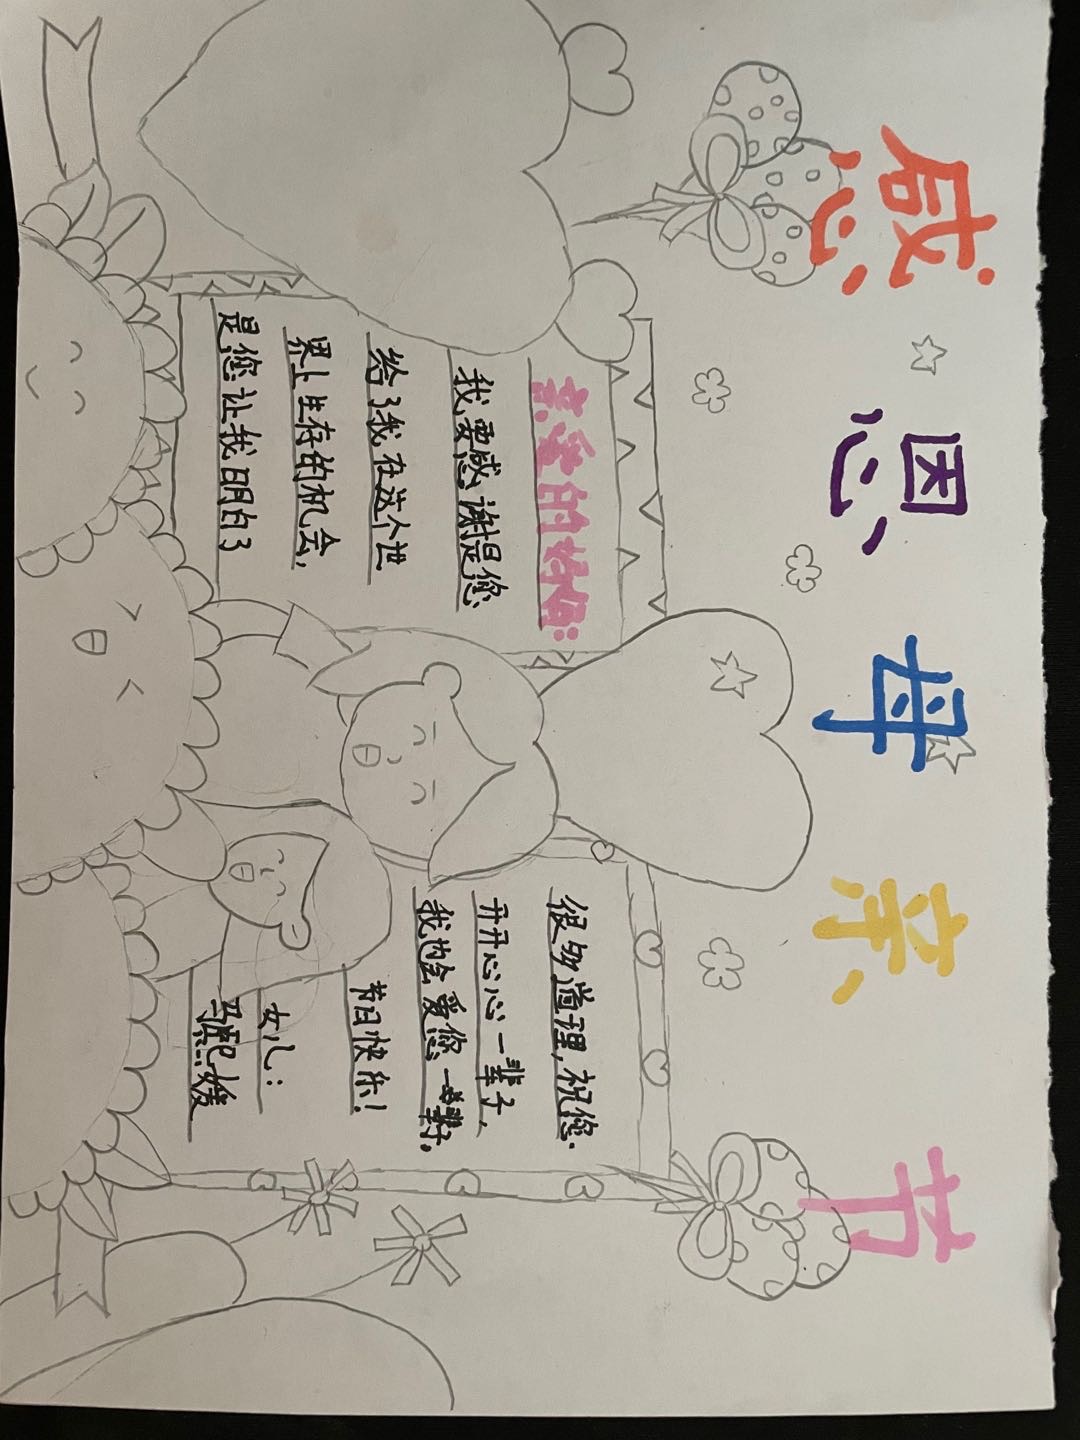 感恩母亲节
亲爱的妈妈:
我要感谢是您
给了我在这个世
界上生存的机会,
是您让我明白了
很多道理,祝您
开开心心一辈子,
我也会爱您一辈子。
节日快乐!
女儿: